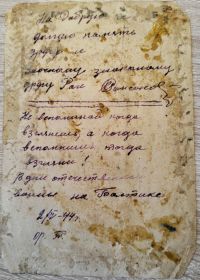 На добрую и
долгую память
другу
знакомому
другу Рае
Не вспоминай когда
взглянешь, а когда
вспомнишь тогда
взгляни!
В дни отечественной
войны на Балтике
44г.